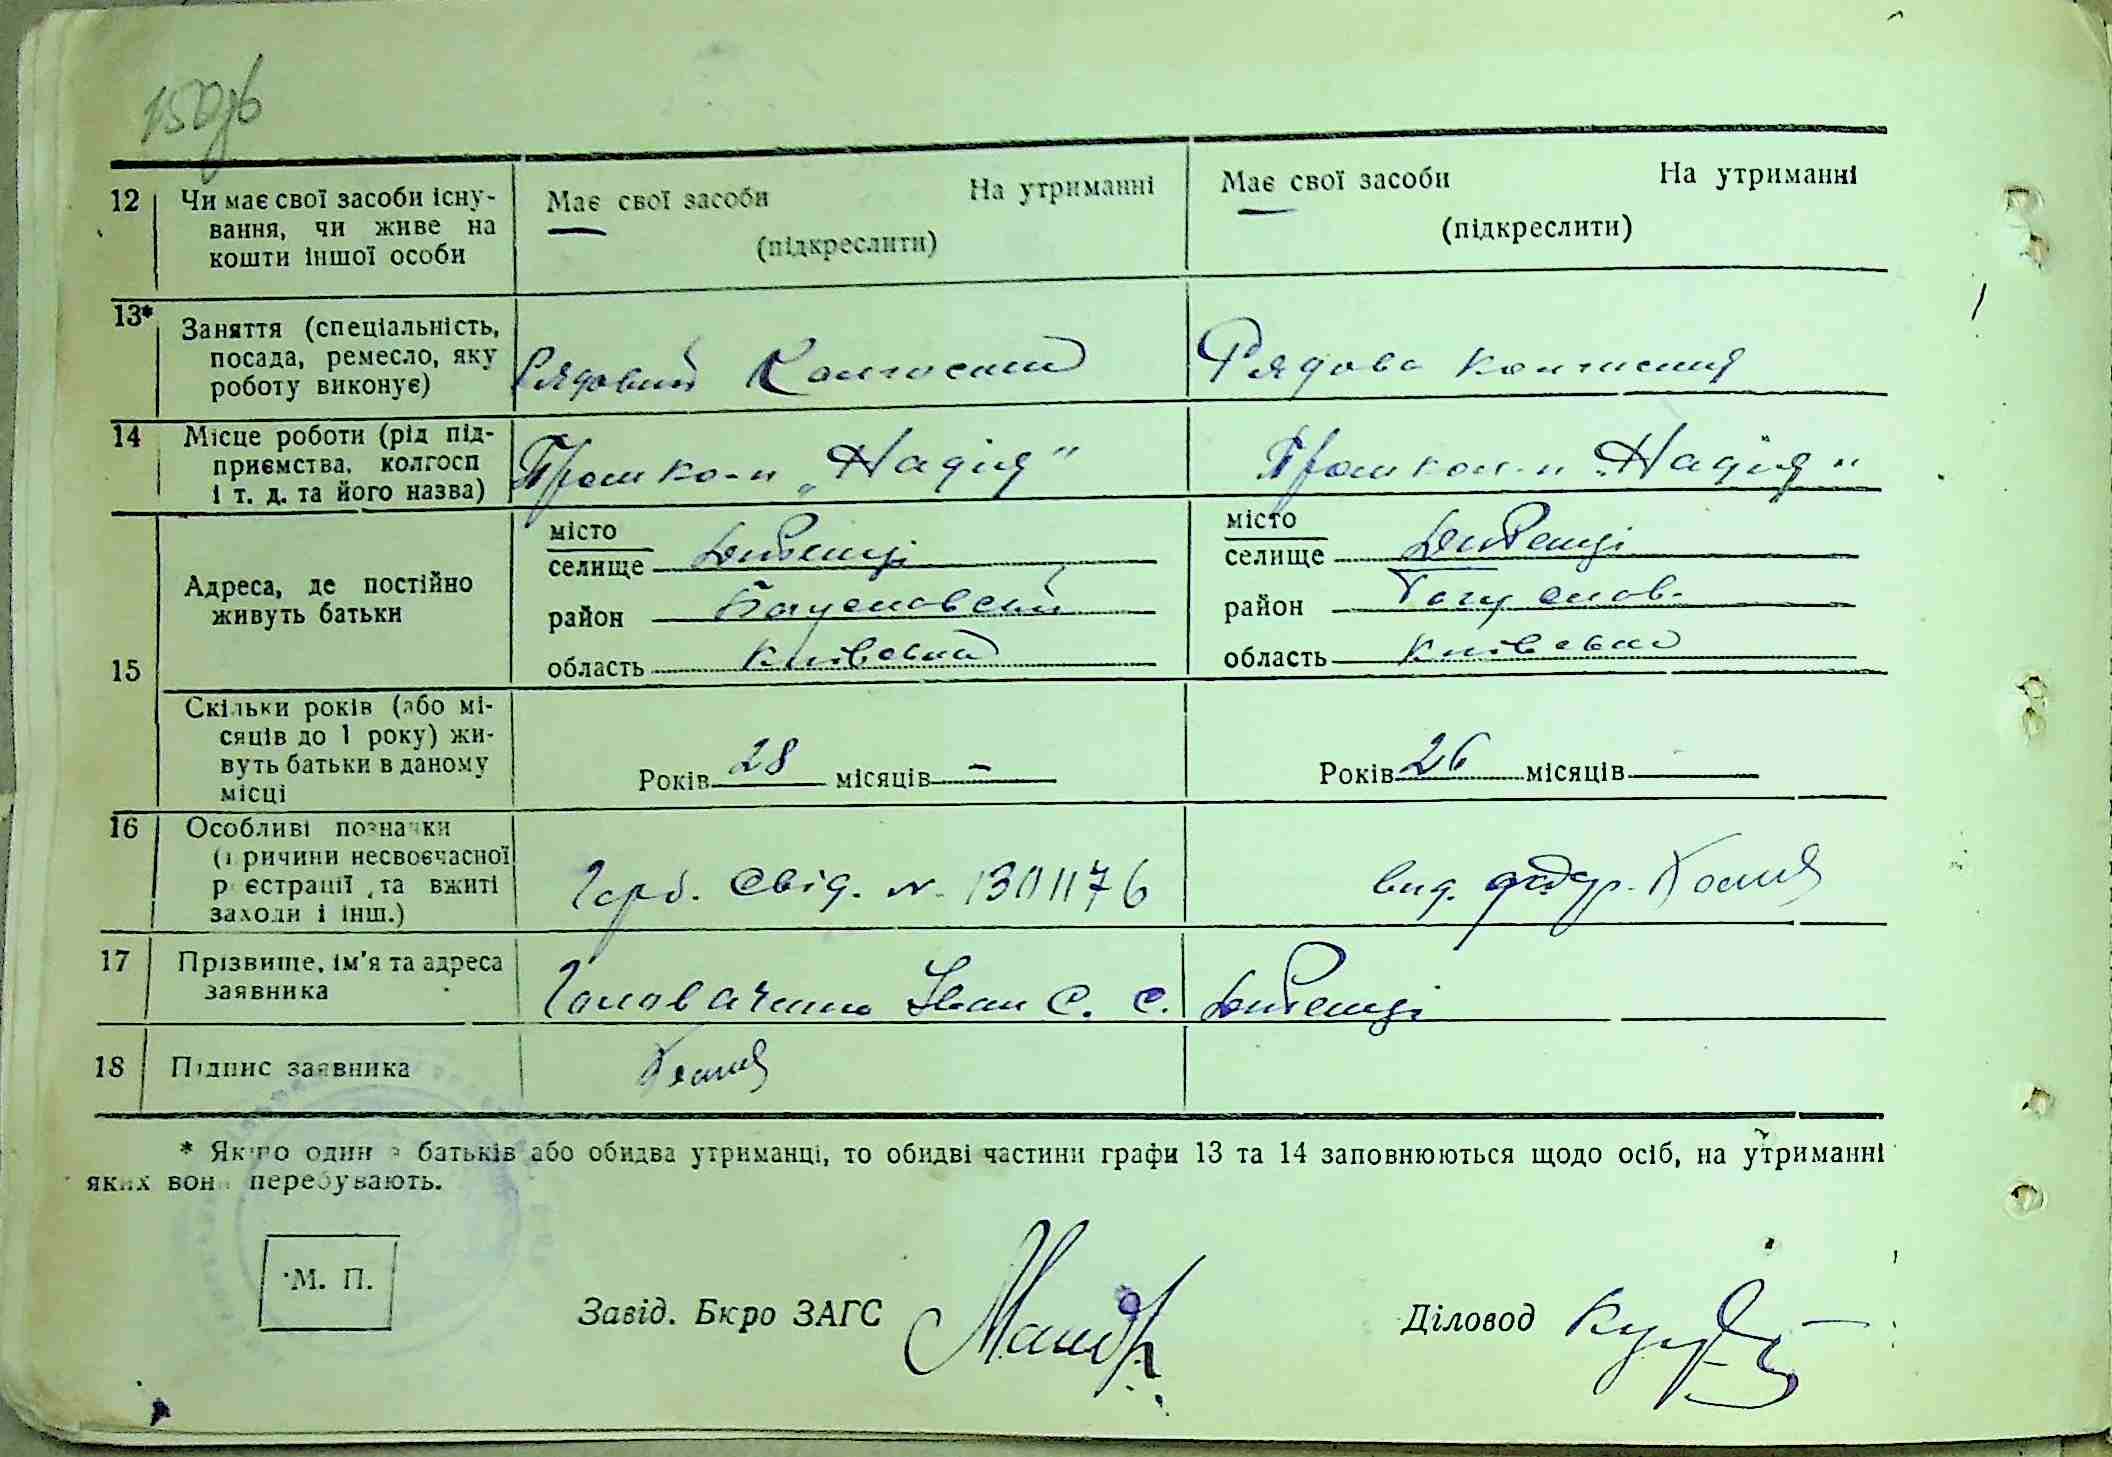 12
Чи має свої засоби існу-
вання, чи живе на
кошти іншої особи
Має свої засоби На утриманні
(підкреслити)
Має свої засоби На утриманні
(підкреслити)
13*
Заняття (спеціальність,
посада, ремесло, яку
роботу виконує)
Рядовий Колгоспник
Рядова колгоспниця
14
Місце роботи (рід під-
приємства, колгосп
і т. д. та його назва)
„Надія"
„Надія"
15
Адреса, де постійно
живуть батьки
місто
селище
район
область Київський
місто
селище
район
область Київський
Скільки років (або мі-
сяців до 1 року) жи-
вуть батьки в даному
місці
Років 28 місяців -
Років 26 місяців
16
Особливі позначки
(причини несвоєчасної
реєстрації та вжиті
заходи і інш.)
Герб. свід. № 1301176
вид.
17
Прізвище, ім'я та адреса
заявника
Головаченко Іван С. с.
18
Підпис заявника
* Якщо один з батьків або обидва утриманці, то обидві частини графи 13 та 14 заповнюються щодо осіб, на утриманні
яких вони перебувають.
М. П.
Завід. Бюро ЗАГС
Діловод